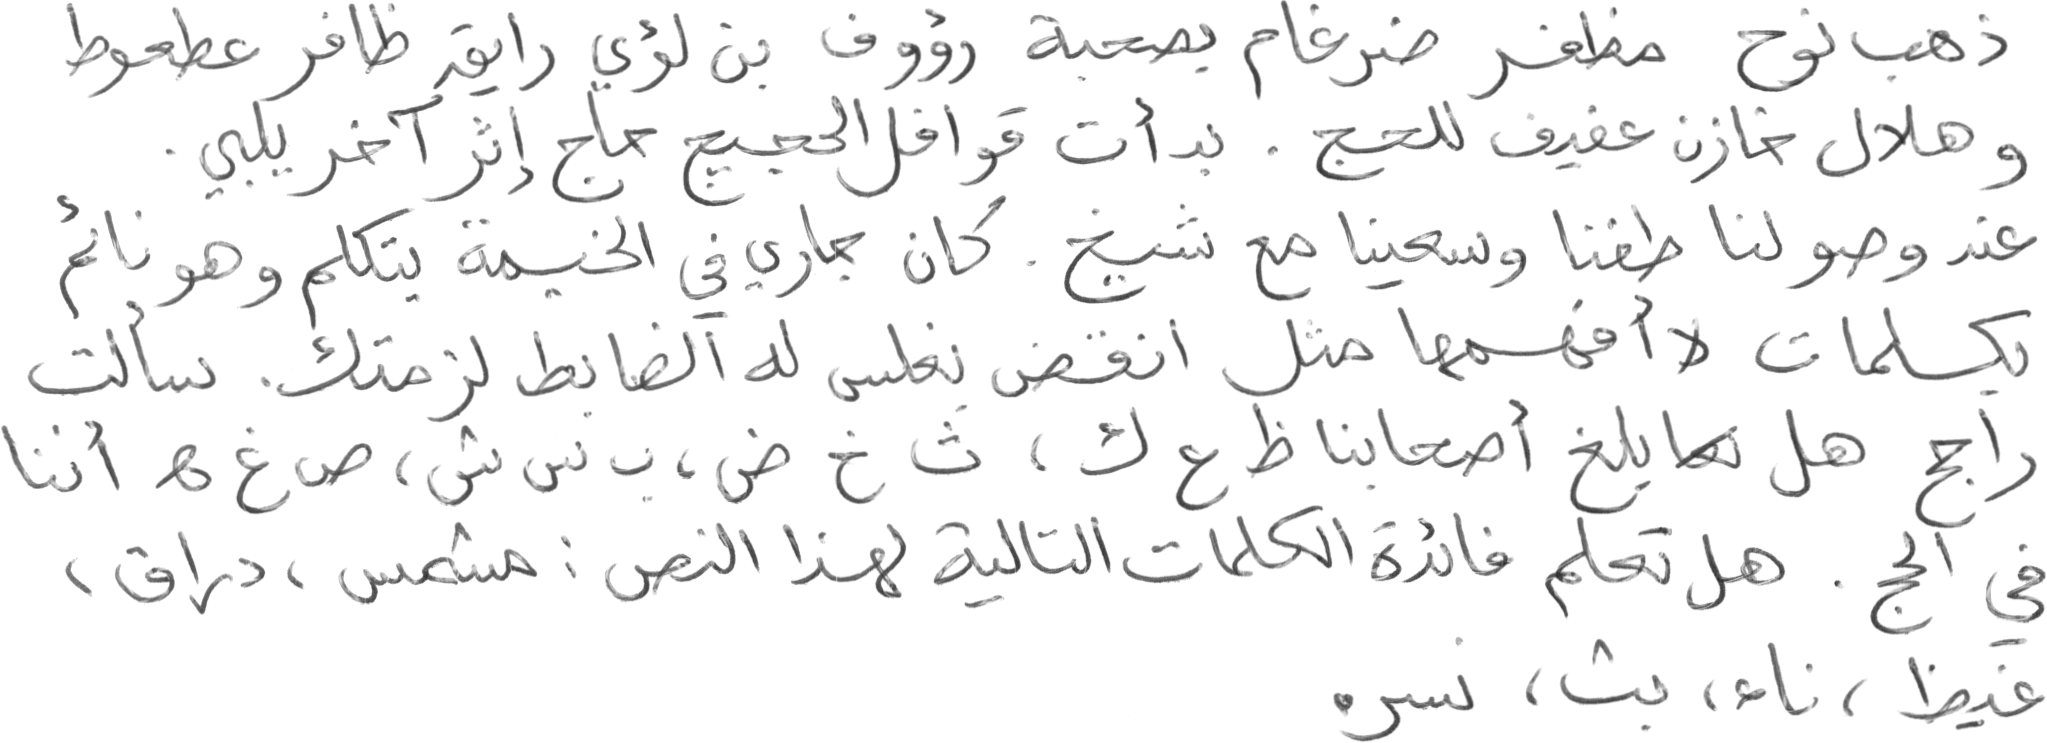 ذهب نوح مظفر ضرغام بصحبة رؤوف بن لؤي رايق ظافر عطعوط
وهلال خازن عفيف للحج . بدأت قوافل الحجيج حاج إثر آخر يلبي .
عند وصولنا طفنا وسعينا مع شيخ . كان جاري في الخيمة يتكلم وهو نائم
بكلمات لا أفهمها مثل انقض نغلس له الضابط لزمتك . سألت
راجح هل يبلغ أصحابنا ظ ع ك ، ث خ ض ، ب س ش ، ص غ ه أننا
في الحج . هل تعلم فائدة الكلمات التالية لهذا النص : مشمس ، دراق ،
غيظ ، ناء ، بث ، نسره